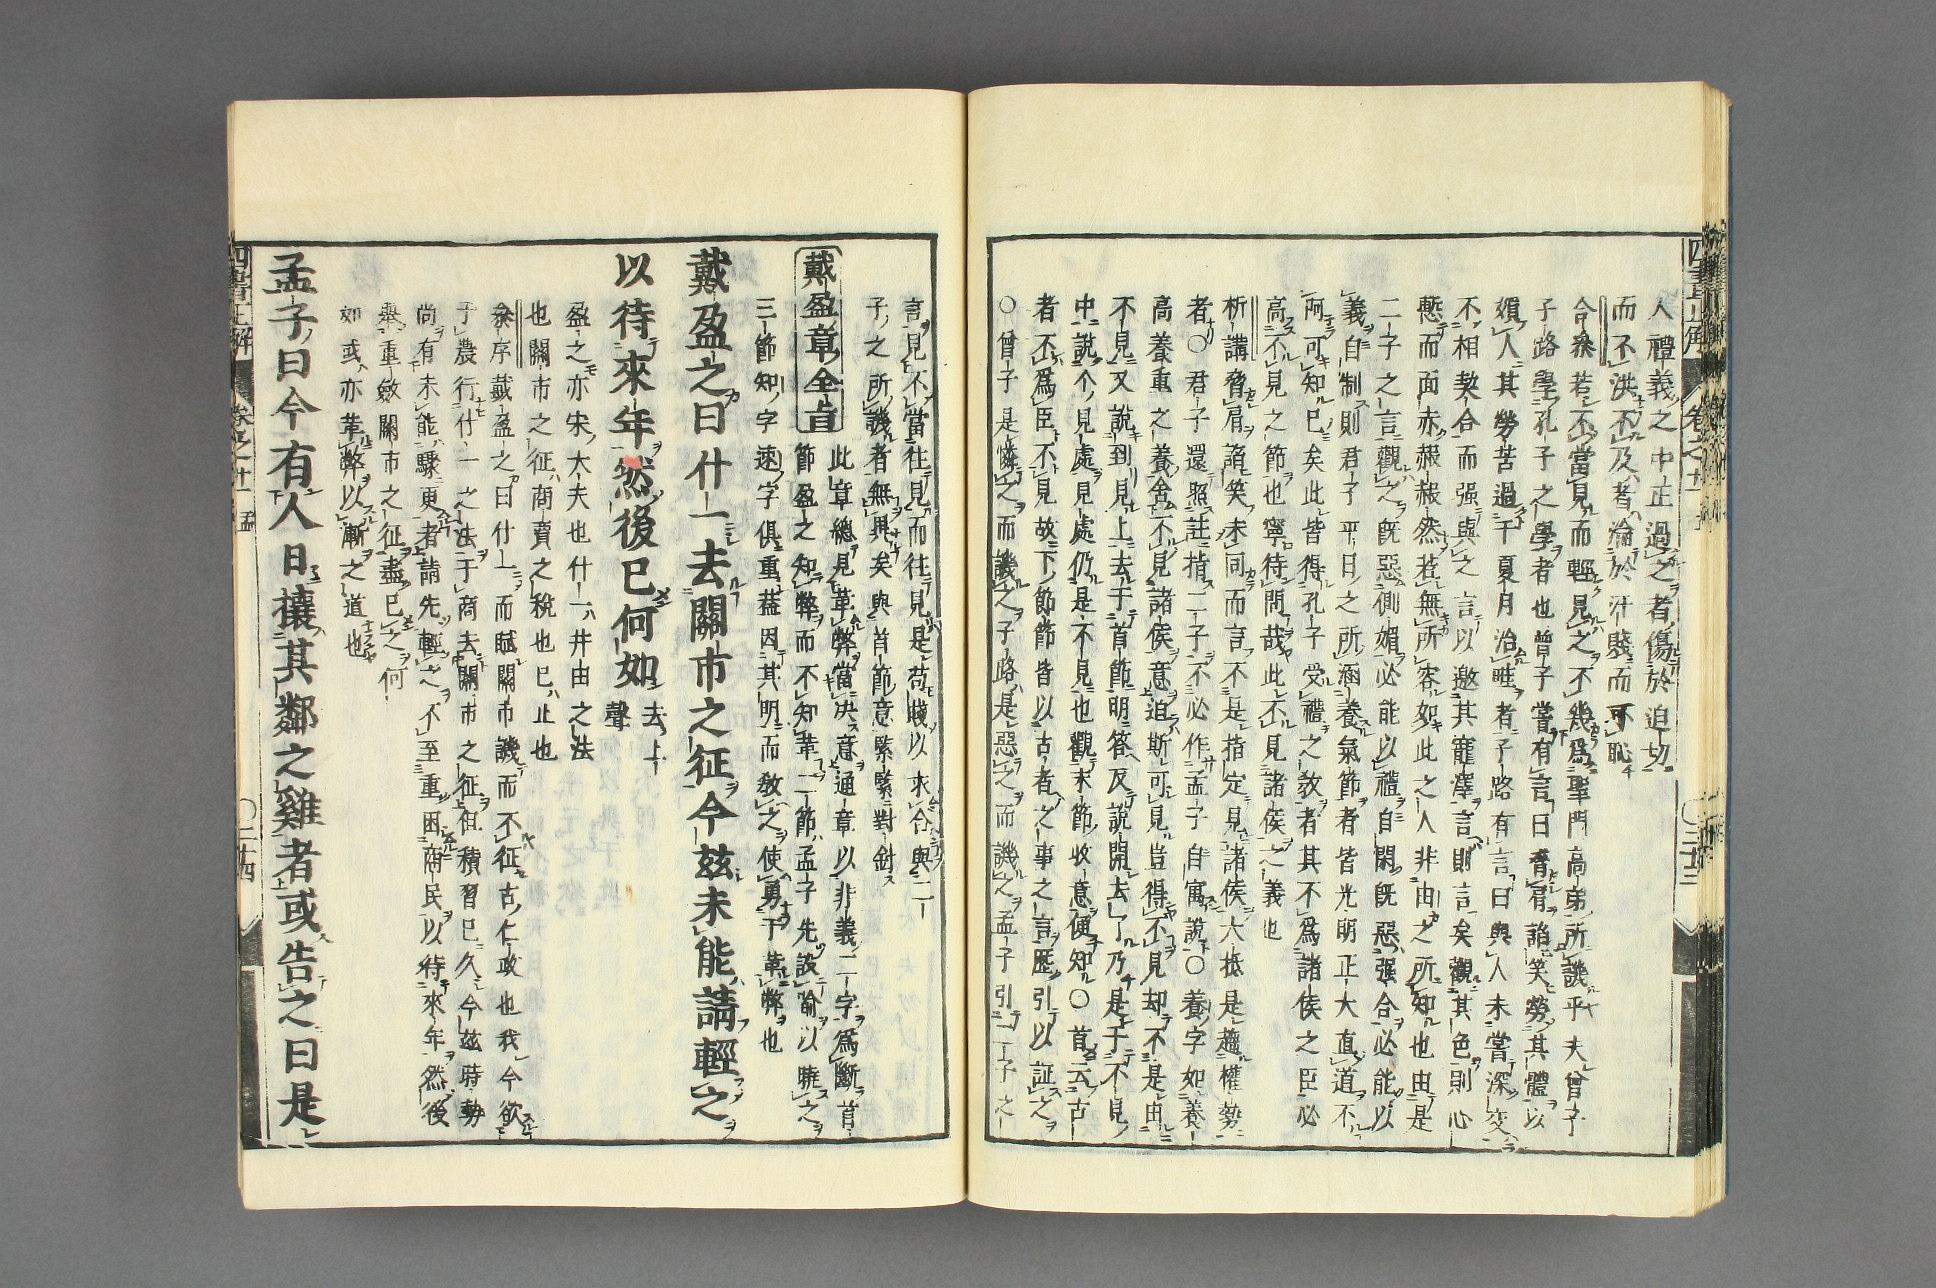 人禮義之中正過之者傷於迫切
而不洪不及者淪於汙賤而不可恥
合參若不當見而輕見之不幾爲聖門高弟所譏乎夫曾子
子路學孔子之學者也曾子嘗有言曰脅肩諂笑勞其體以
媚人其勞苦過于夏月治畦者子路有言曰與人未嘗深交
不相契合而强與之言以邀其寵澤言則言矣觀其色則心
慙而面赤赧赧然若無所容如此之人非由之所知也由是
二子之言觀之旣惡側媚必能以禮自閑旣惡强合必能以
義自制則君子平日之所涵養氣節者皆光明正大直道不
阿可知已矣此皆得孔子受禮之敎者其不爲諸侯之臣必
高不見之節也寧待問哉此不見諸侯之義也
析講脅肩諂笑未同而言不是指定見諸侯大抵是趨權勢
者〇君子還照註指二子不必作孟子自寓說〇養字如養
高養重之養舍不見諸侯意迫斯可見豈得不見却不是由
不見又說到見上去于首節明答反說開去了乃是于不見
中說个見處見處仍是不見也觀末節收意便知〇首云古
者不爲臣不見故下節節皆以古者之事之言歷引以証之
〇曾子是憐之而譏之子路是惡之而譏之孟子引二子之
言見不當往見而往見是苟賤以求合與二
子之所譏者無異矣與首節意緊緊對針
戴盈章全旨 此章總見革弊當决意通章以非義二字爲斷首
節盈之知弊而不知革二節孟子先設喻以曉之
三節知字速字俱重葢因其明而敎之使勇于革弊也
戴盈之曰什一去關市之征今兹未能請輕之
以待來年然後已何如 去上聲
盈之亦宋大夫也什一井田之法
也關市之征商賈之稅也已止也
合參序戴盈之曰什一而賦關市譏而不征古仁政也我今欲
于農行什一之法于商去關市之征但積習已久今兹時勢
尚有未能驟更者請先輕之不至重困商民以待來年然後
舉重斂關市之征盡已之何
如或亦革弊以漸之道也
孟子曰今有人日攘其鄰之雞者或告之曰是
四書正解 卷之十一 孟 〇二十四